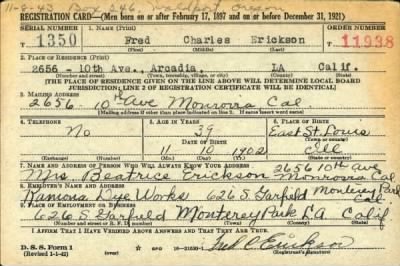 11-8-43 Box 246, Waldport, Oregon
REGISTRATION CARD—(Men born on or after February 17, 1897 and on or before December 31, 1921)
SERIAL NUMBER 1. NAME (Print) ORDER NUMBER
T 1350 Fred Charles Erickson T 11938
(First) (Middle) (Last)
2. PLACE OF RESIDENCE (Print)
2656 - 10th Ave., Arcadia, LA Calif.
(Number and street) (Town, township, village, or city) (County) (State)
[THE PLACE OF RESIDENCE GIVEN ON THE LINE ABOVE WILL DETERMINE LOCAL BOARD
JURISDICTION; LINE 2 OF REGISTRATION CERTIFICATE WILL BE IDENTICAL]
3. MAILING ADDRESS
2656 10th Ave Monrovia Cal.
[Mailing address if other than place indicated on line 2. If same insert word same]
4. TELEPHONE 5. AGE IN YEARS 6. PLACE OF BIRTH
No 39 East St. Louis
DATE OF BIRTH (Town or county)
11 10 1902 Ill
(Mo.) (Day) (Yr.) (State or country)
7. NAME AND ADDRESS OF PERSON WHO WILL ALWAYS KNOW YOUR ADDRESS
Mrs Beatrice Erickson 2656 10th Ave Monrovia Cal
8. EMPLOYER'S NAME AND ADDRESS
Ramona Dye Works 626 S. Garfield Monterey Park Cal.
9. PLACE OF EMPLOYMENT OR BUSINESS
626 S. Garfield Monterey Park LA. Calif
(Number and street or R. F. D. number) (Town) (County) (State)
I AFFIRM THAT I HAVE VERIFIED ABOVE ANSWERS AND THAT THEY ARE TRUE.
D. S. S. Form 1
(Revised 1-1-42) 16—21630-2 Fred C Erickson
(Registrant's signature)